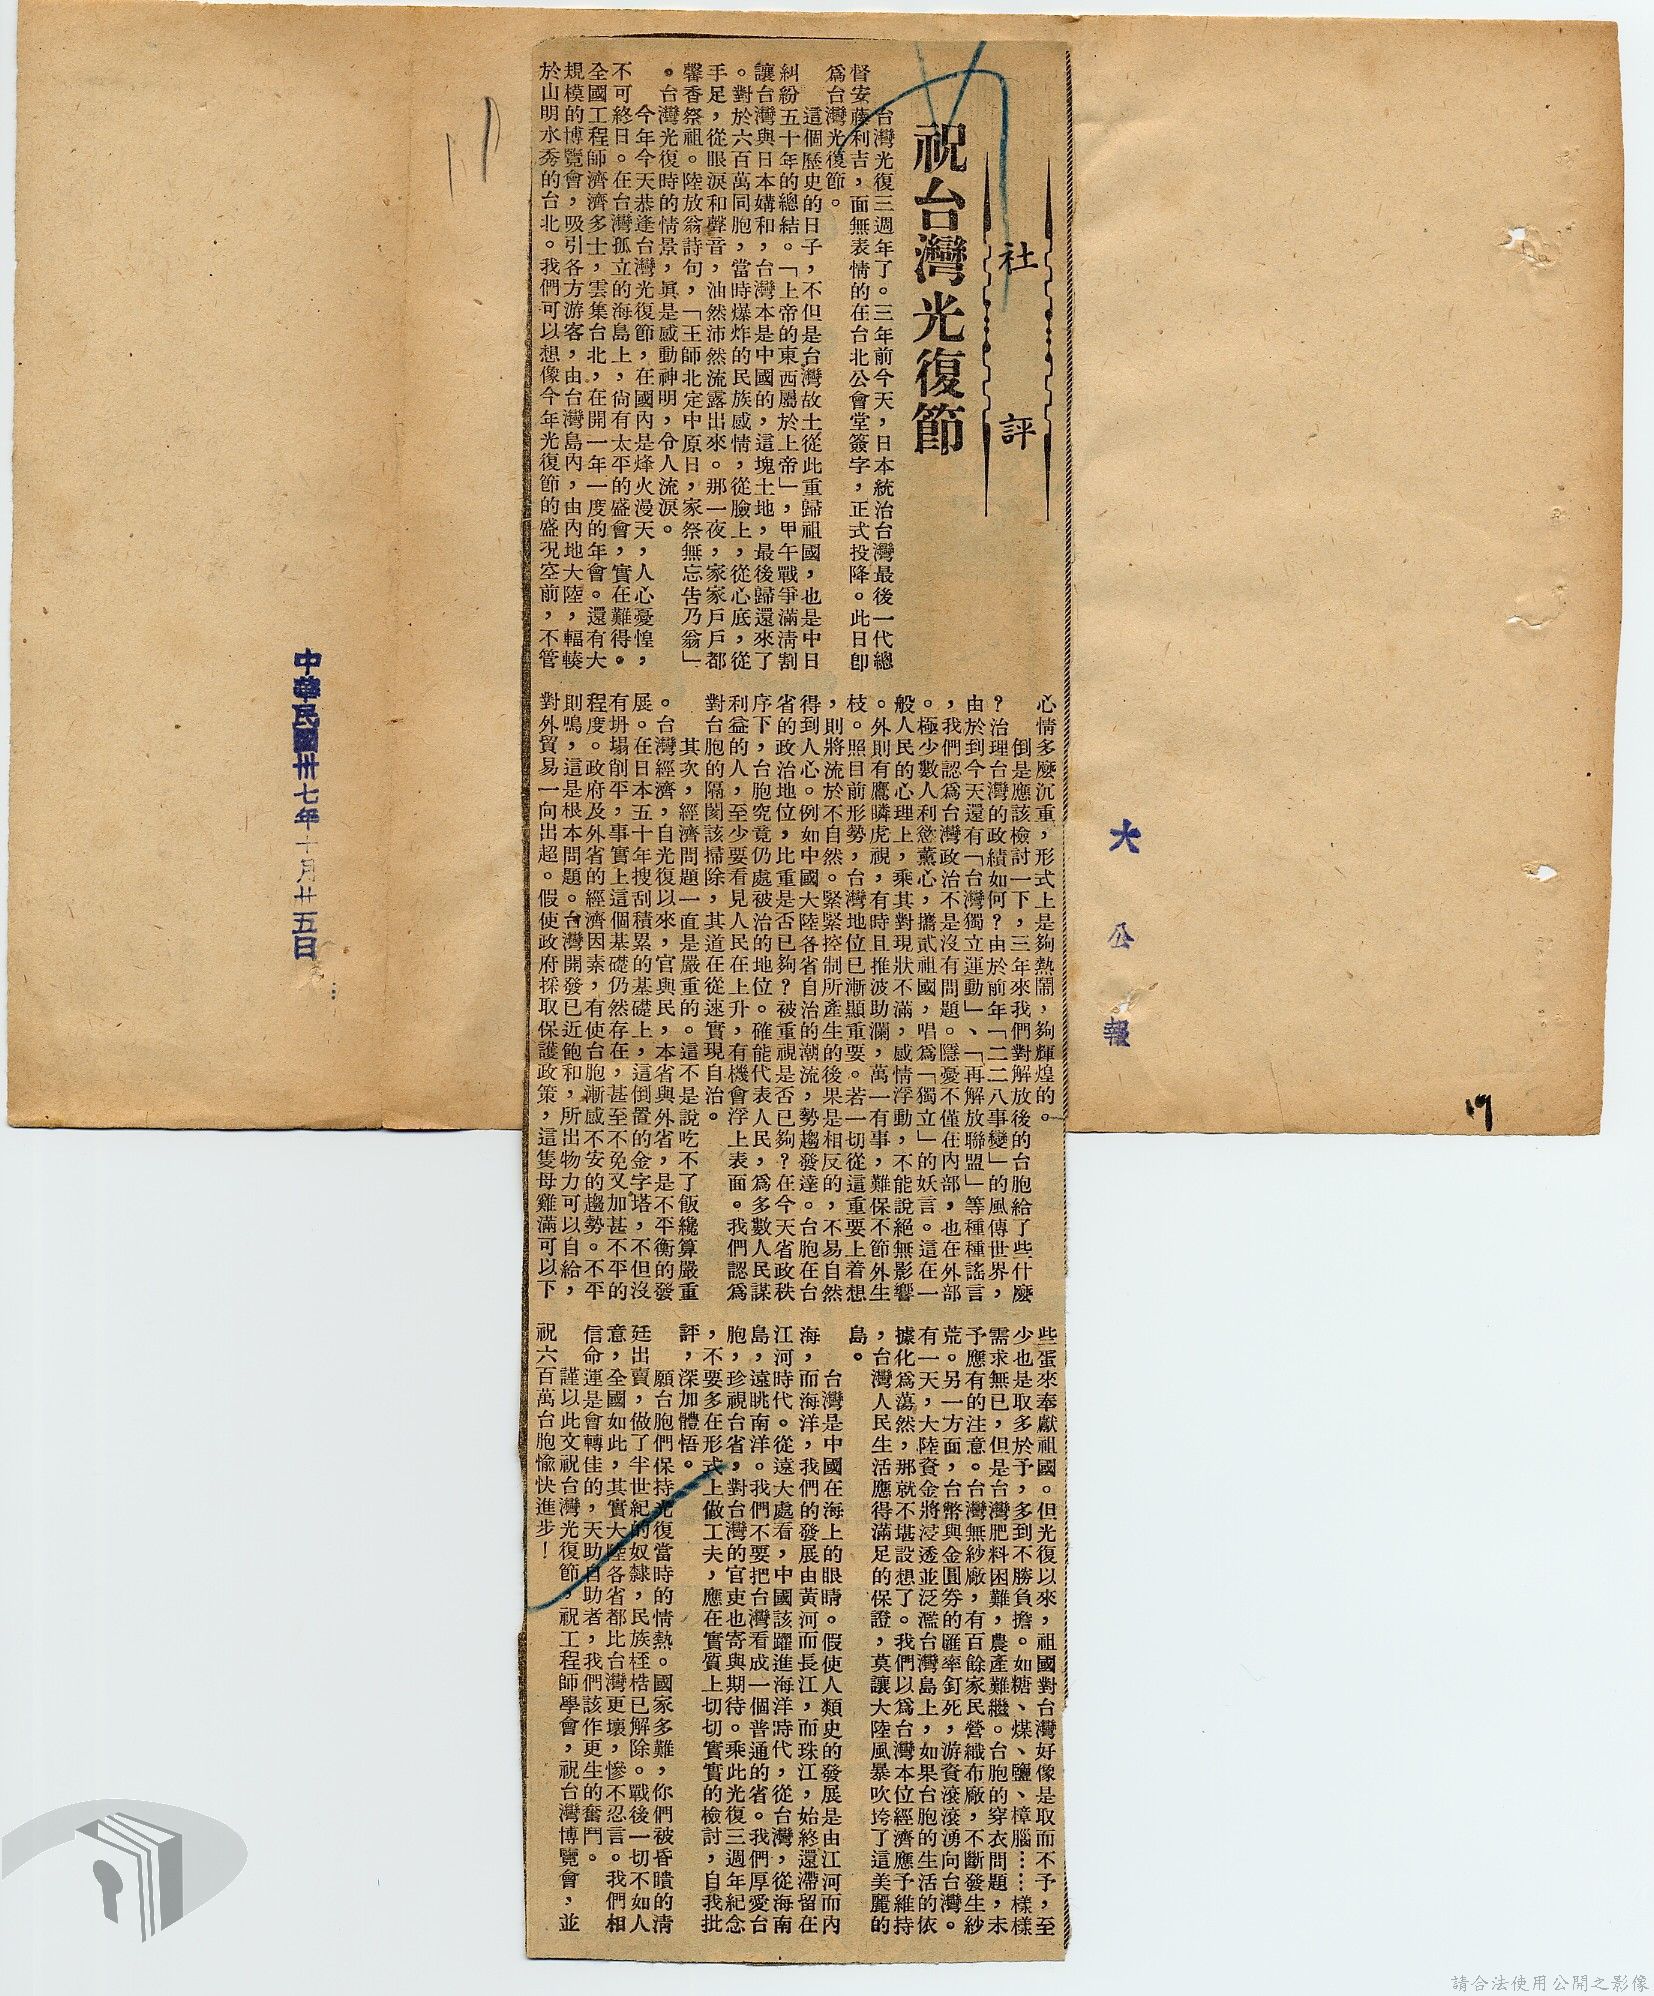 社評
祝台灣光復節
台灣光復三週年了。三年前今天，日本統治台灣最後一代總
督安藤利吉，面無表情的在台北公會堂簽字，正式投降。此日卽
爲台灣光復節。
這個歷史的日子，不但是台灣故土從此重歸祖國，也是中日
糾紛五十年的總結。「上帝的東西屬於上帝」，甲午戰爭滿淸割
讓台灣與日本媾和，台灣本是中國的，這塊土地，最後歸還來了
。對於六百萬同胞，當時爆炸的民族感情，從臉上，從心底，從
手足，從眼淚和聲音，油然沛然流露出來。那一夜，家家戶戶都
馨香祭祖。陸放翁詩句，「王師北定中原日，家祭無忘告乃翁」
。台灣光復時的情景，眞是感動神明，令人流淚。
今年今天恭逢台灣光復節，在國內是烽火漫天，人心憂惶，
不可終日。在台灣孤立的海島上，尙有太平的盛會，實在難得。
全國工程師濟濟多士，雲集台北，在開一年一度的年會。還有大
規模的博覽會，吸引各方游客，由台灣島內，由內地大陸，輻輳
於山明水秀的台北。我們可以想像今年光復節的盛況空前，不管
心情多麽沉重，形式上是夠熱鬧，夠輝煌的。
倒是應該檢討一下，三年來我們對解放後的台胞給了些什麽
？治理台灣的政績如何？由於前年「二二八事變」的風傳世界，
由於到今天還有「台灣獨立運動」、「再解放聯盟」等種種謠言
，我們認爲台灣政治不是沒有問題。隱憂不僅在內部，也在外部
。極少數人利慾薰心，攜貳祖國，唱爲「獨立」的妖言。這在一
般人民的心理上，乘其對現狀不滿，感情浮動，不能說絕無影響
。外則有鷹瞵虎視，有時且推波助瀾，萬一有事，難保不節外生
枝。照目前形勢，台灣地位已漸顯重要。若一切從這重要上着想
，則將流於不自然。緊緊控制所產生的後果是相反的，不易自然
得到人心。例如中國大陸各省自治的潮流，勢趨發達。台胞在台
省的政治地位，比重是否已夠？被重視是否已夠？在今天省政秩
序下，台胞究竟仍處被治的地位。確能代表人民，爲多數人民謀
利益的人，至少要看見人民在上升，有機會浮上表面。我們認爲
對台胞的隔閡該掃除，其道在從速實現自治。
其次，經濟問題一直是嚴重的。這不是說吃不了飯纔算嚴重
。台灣經濟，自光復以來，官與民，本省與外省，是不平衡的發
展。在日本五十年搜刮積累的基礎上，這倒置的金字塔，不但沒
有坍塌削平，事實上這個基礎仍然存在，甚至不免又加甚不平的
程度。政府及外省的經濟因素，有使台胞漸感不安的趨勢。不平
則鳴，這是根本問題。台灣開發已近飽和，所出物力可以自給，
對外貿易一向出超。假使政府採取保護政策，這隻母雞滿可以下
些蛋來奉獻祖國。但光復以來，祖國對台灣好像是取而不予，至
少也是取多於予，多到不勝負擔。如糖、煤、鹽、樟腦……樣樣
需求無已，但是台灣肥料困難，農產難繼。台胞的穿衣問題，未
予應有的注意。台灣無紗廠，有百餘家民營織布廠，不斷發生紗
荒。另一方面，台幣與金圓券的匯率釘死，游資滾滾湧向台灣。
有一天，大陸資金將浸透並泛濫台灣島上，如果台胞的生活的依
據化爲蕩然，那就不堪設想了。我們以爲台灣本位經濟應予維持
，台灣人民生活應得滿足的保證，莫讓大陸風暴吹垮了這美麗的
島。
台灣是中國在海上的眼睛。假使人類史的發展是由江河而內
海，而海洋，我們的發展由黃河而長江，而珠江，始終還滯留在
江河時代。從遠大處看，中國該躍進海洋時代，從台灣，從海南
島，遠眺南洋。我們不要把台灣看成一個普通的省。我們厚愛台
胞，珍視台省，對台灣的官吏也寄與期待。乘此光復三週年紀念
，不要多在形式上做工夫，應在實質上切切實實的檢討，自我批
評，深加體悟。
願台胞們保持光復當時的情熱。國家多難，你們被昏瞶的淸
廷出賣，做了半世紀的奴隸，民族桎梏已解除。戰後一切不如人
意，全國如此，其實大陸各省都比台灣更壞，慘不忍言。我們相
信命運是會轉佳的，天助自助者，我們該作更生的奮鬥。
謹以此文祝台灣光復節，祝工程師學會，祝台灣博覽會，並
祝六百萬台胞愉快進步！
大公報
中華民國卅七年十月廿五日
17
請合法使用公開之影像